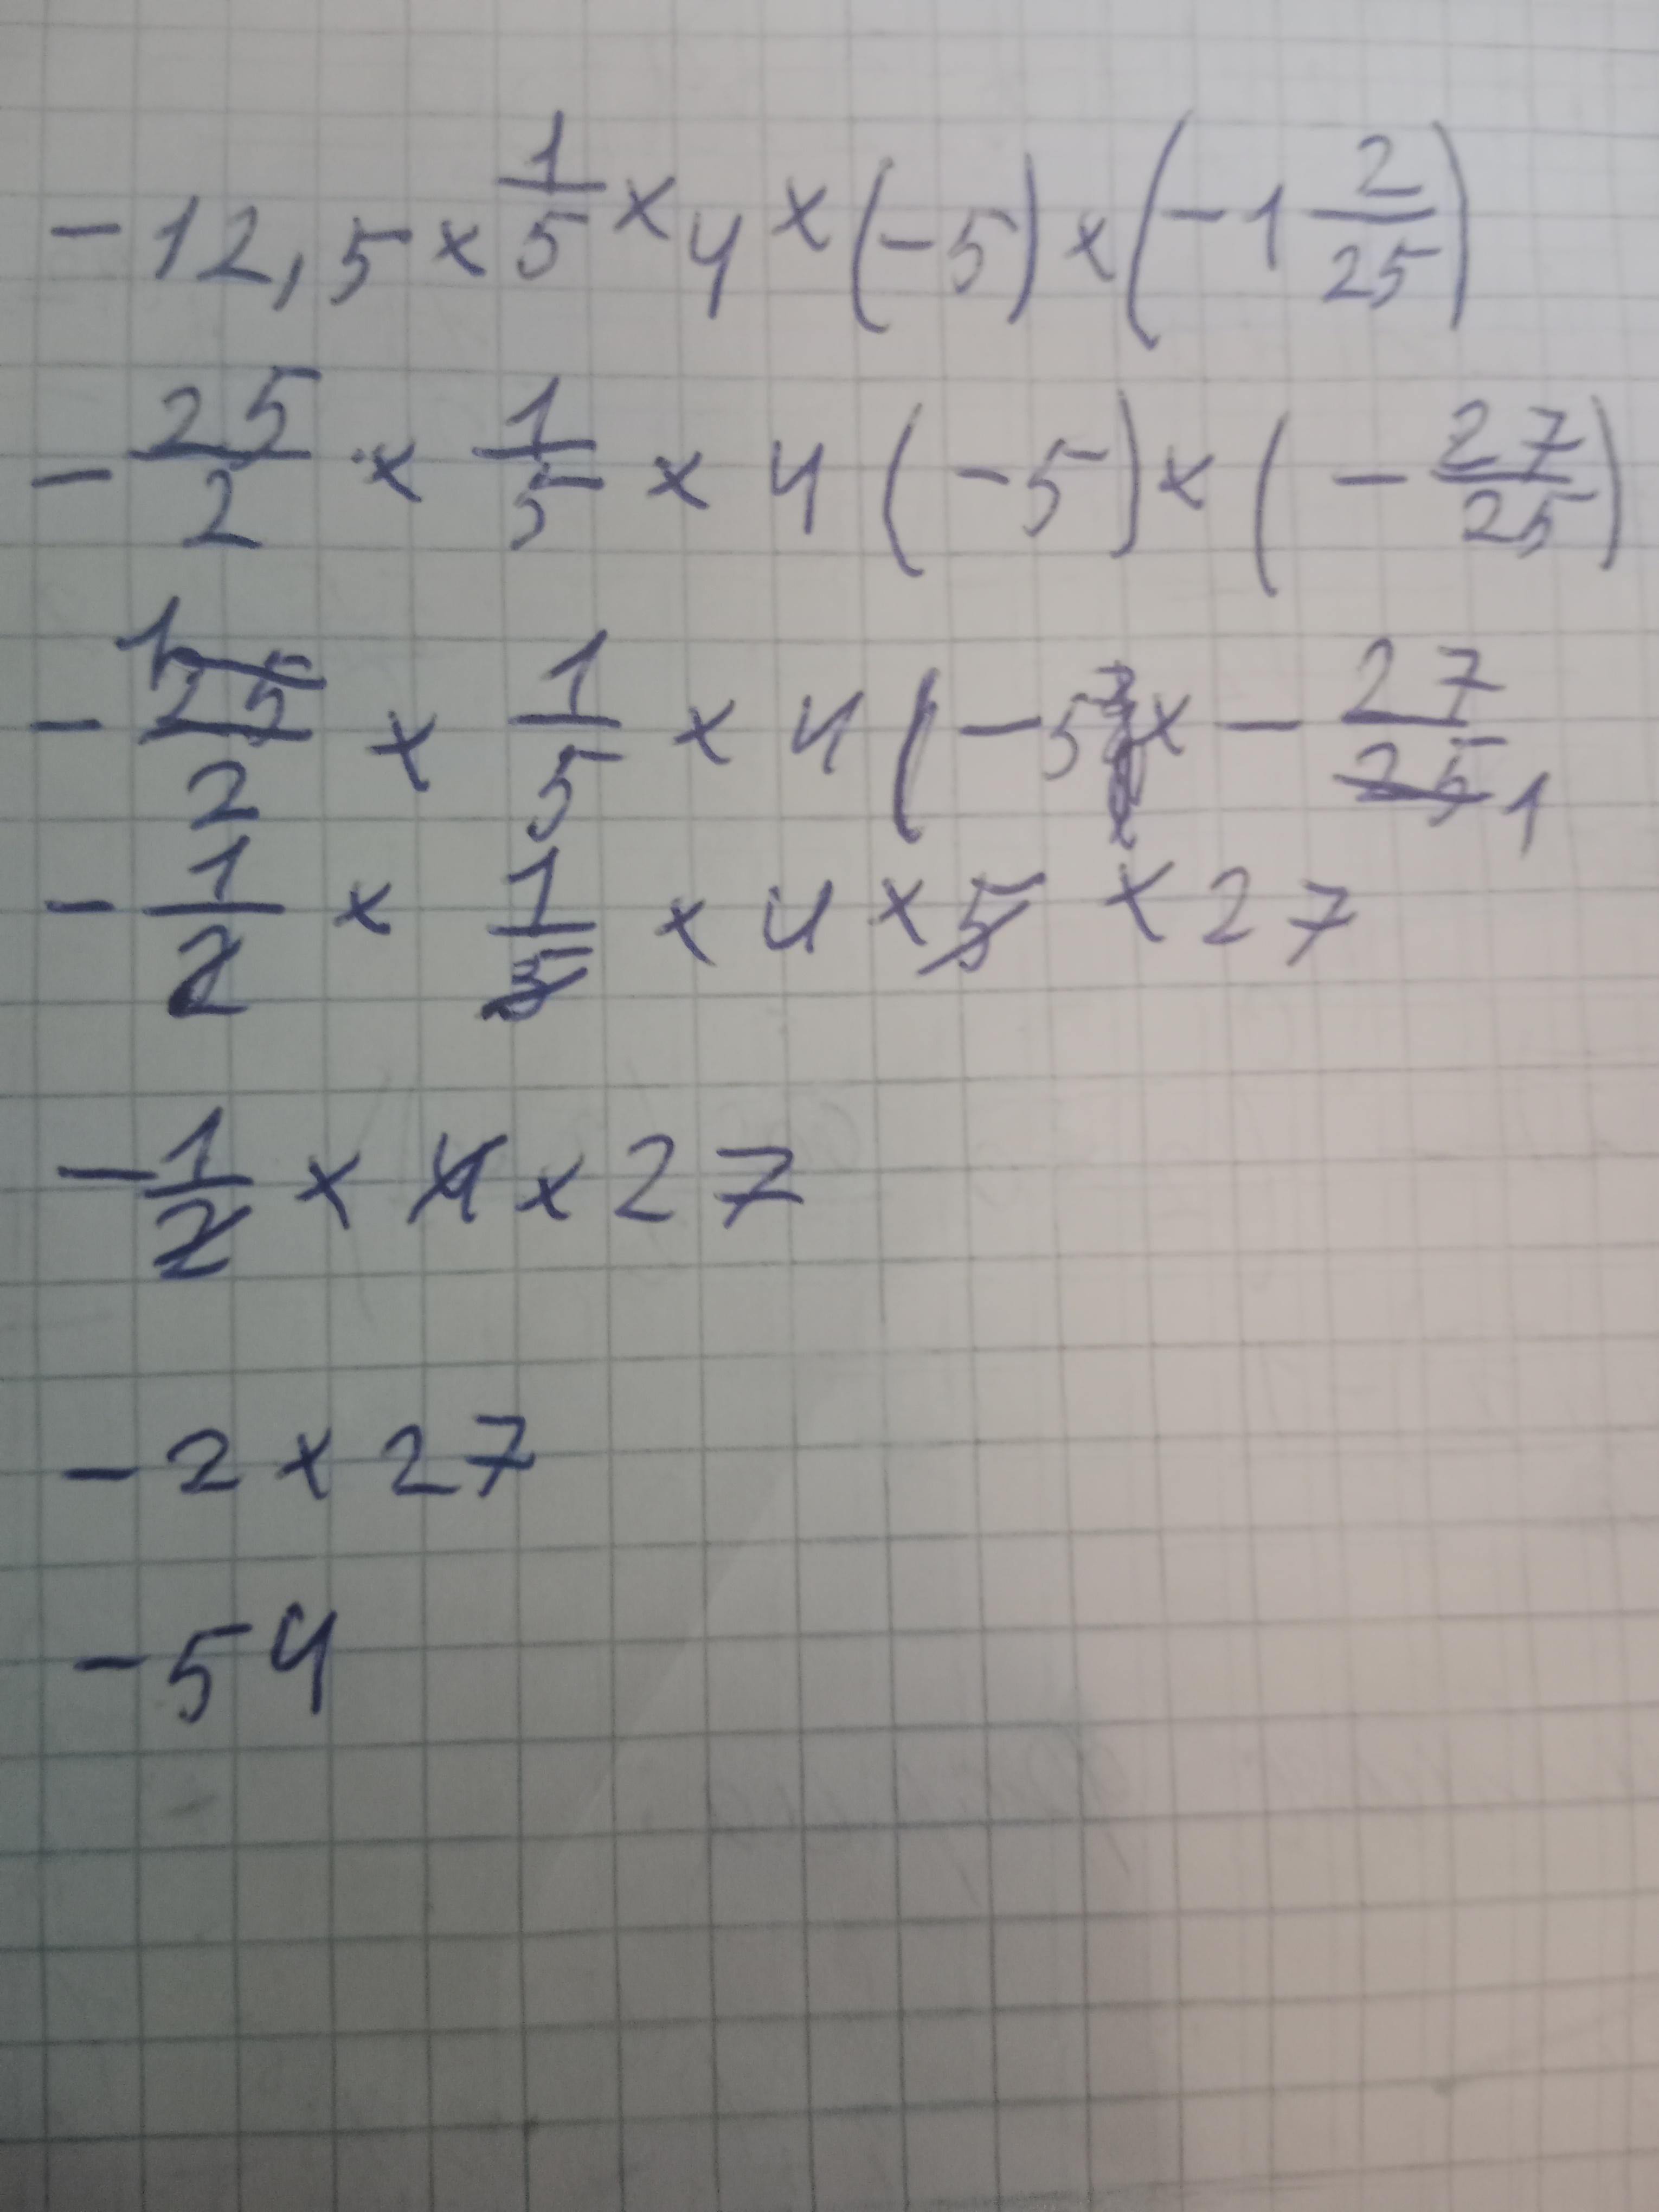 -12,5 × 1/5 × 4 × (-5) × (-1 2/25)
- 25/2 × 1/5 × 4 (-5) × (- 27/25)
- 25/2 1 × 1/5 × 4 (-5 × - 27/25 1
- 1/2 × 1/5 × 4 × 5 × 27
- 1/2 × 4 × 27
- 2 × 27
- 54